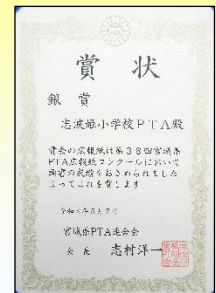 賞状
銀賞
志波姫小学校PTA殿
貴会の広報紙は第38回宮城県
PTA広報紙コンクールにおいて
頭書の成績をおさめられました
よってこれを賞します
宮城県PTA連合会
会長 志村洋一